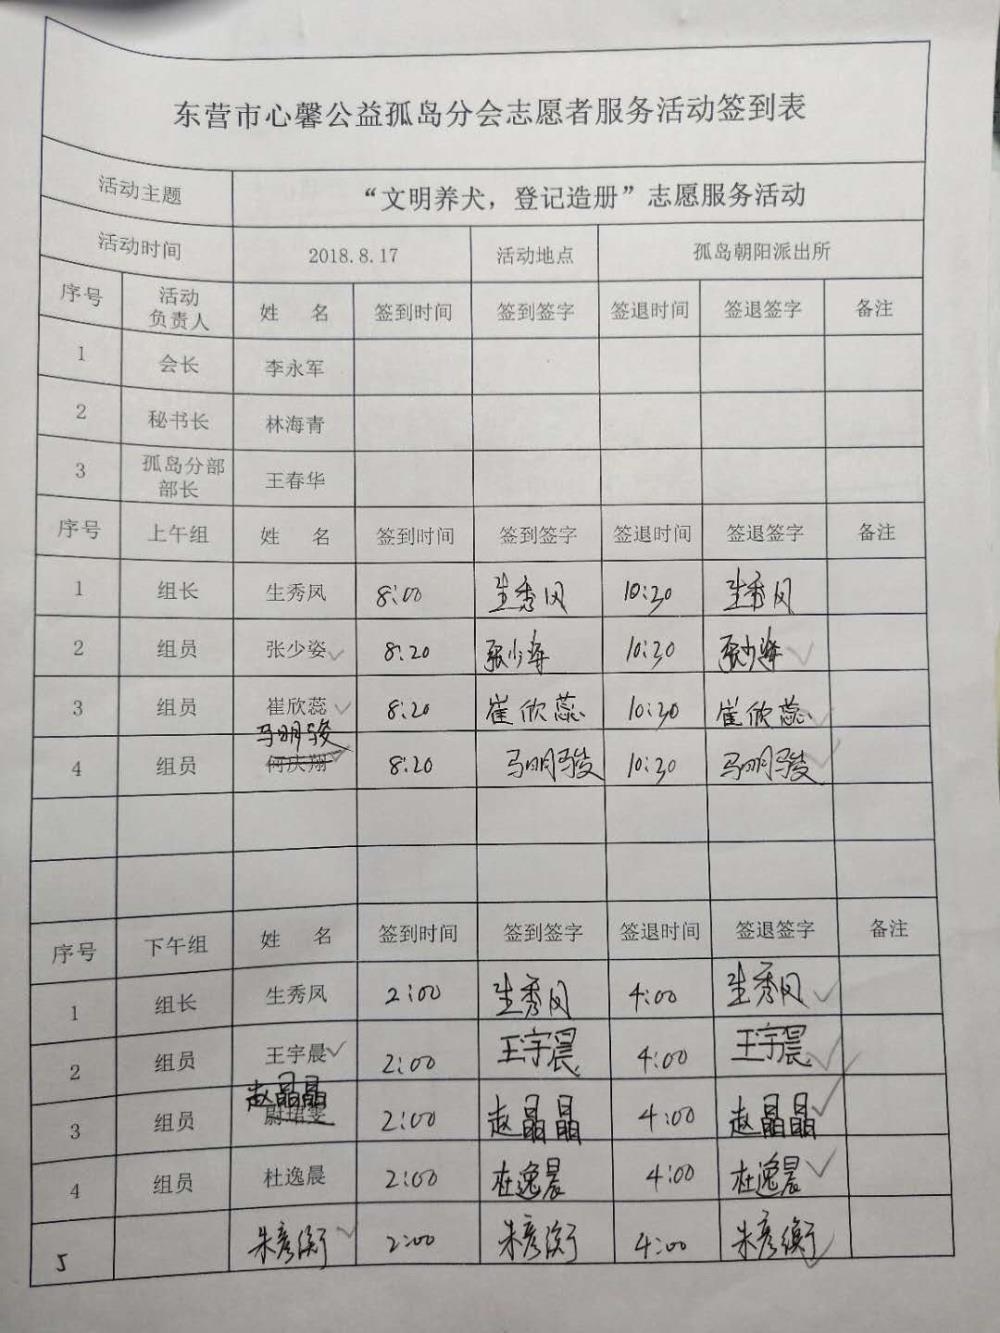 东营市心馨公益孤岛分会志愿者服务活动签到表
活动主题 “文明养犬，登记造册”志愿服务活动
活动时间 2018.8.17 活动地点 孤岛朝阳派出所
序号 活动负责人 姓 名 签到时间 签到签字 签退时间 签退签字 备注
1 会长 李永军
2 秘书长 林海青
3 孤岛分部部长 王春华
序号 上午组 姓 名 签到时间 签到签字 签退时间 签退签字 备注
1 组长 生秀凤 8:00 生秀凤 10:30 生秀凤
2 组员 张少姿 8:20 张少姿 10:30 张少姿
3 组员 崔欣蕊 8:20 崔欣蕊 10:30 崔欣蕊
马明骏
4 组员 何庆翔 8:20 马明骏 10:30 马明骏
序号 下午组 姓 名 签到时间 签到签字 签退时间 签退签字 备注
1 组长 生秀凤 2:00 生秀凤 4:00 生秀凤
2 组员 王宇晨 2:00 王宇晨 4:00 王宇晨
赵晶晶
3 组员 2:00 赵晶晶 4:00 赵晶晶
4 组员 杜逸晨 2:00 杜逸晨 4:00 杜逸晨
5 朱彦衡 2:00 朱彦衡 4:00 朱彦衡